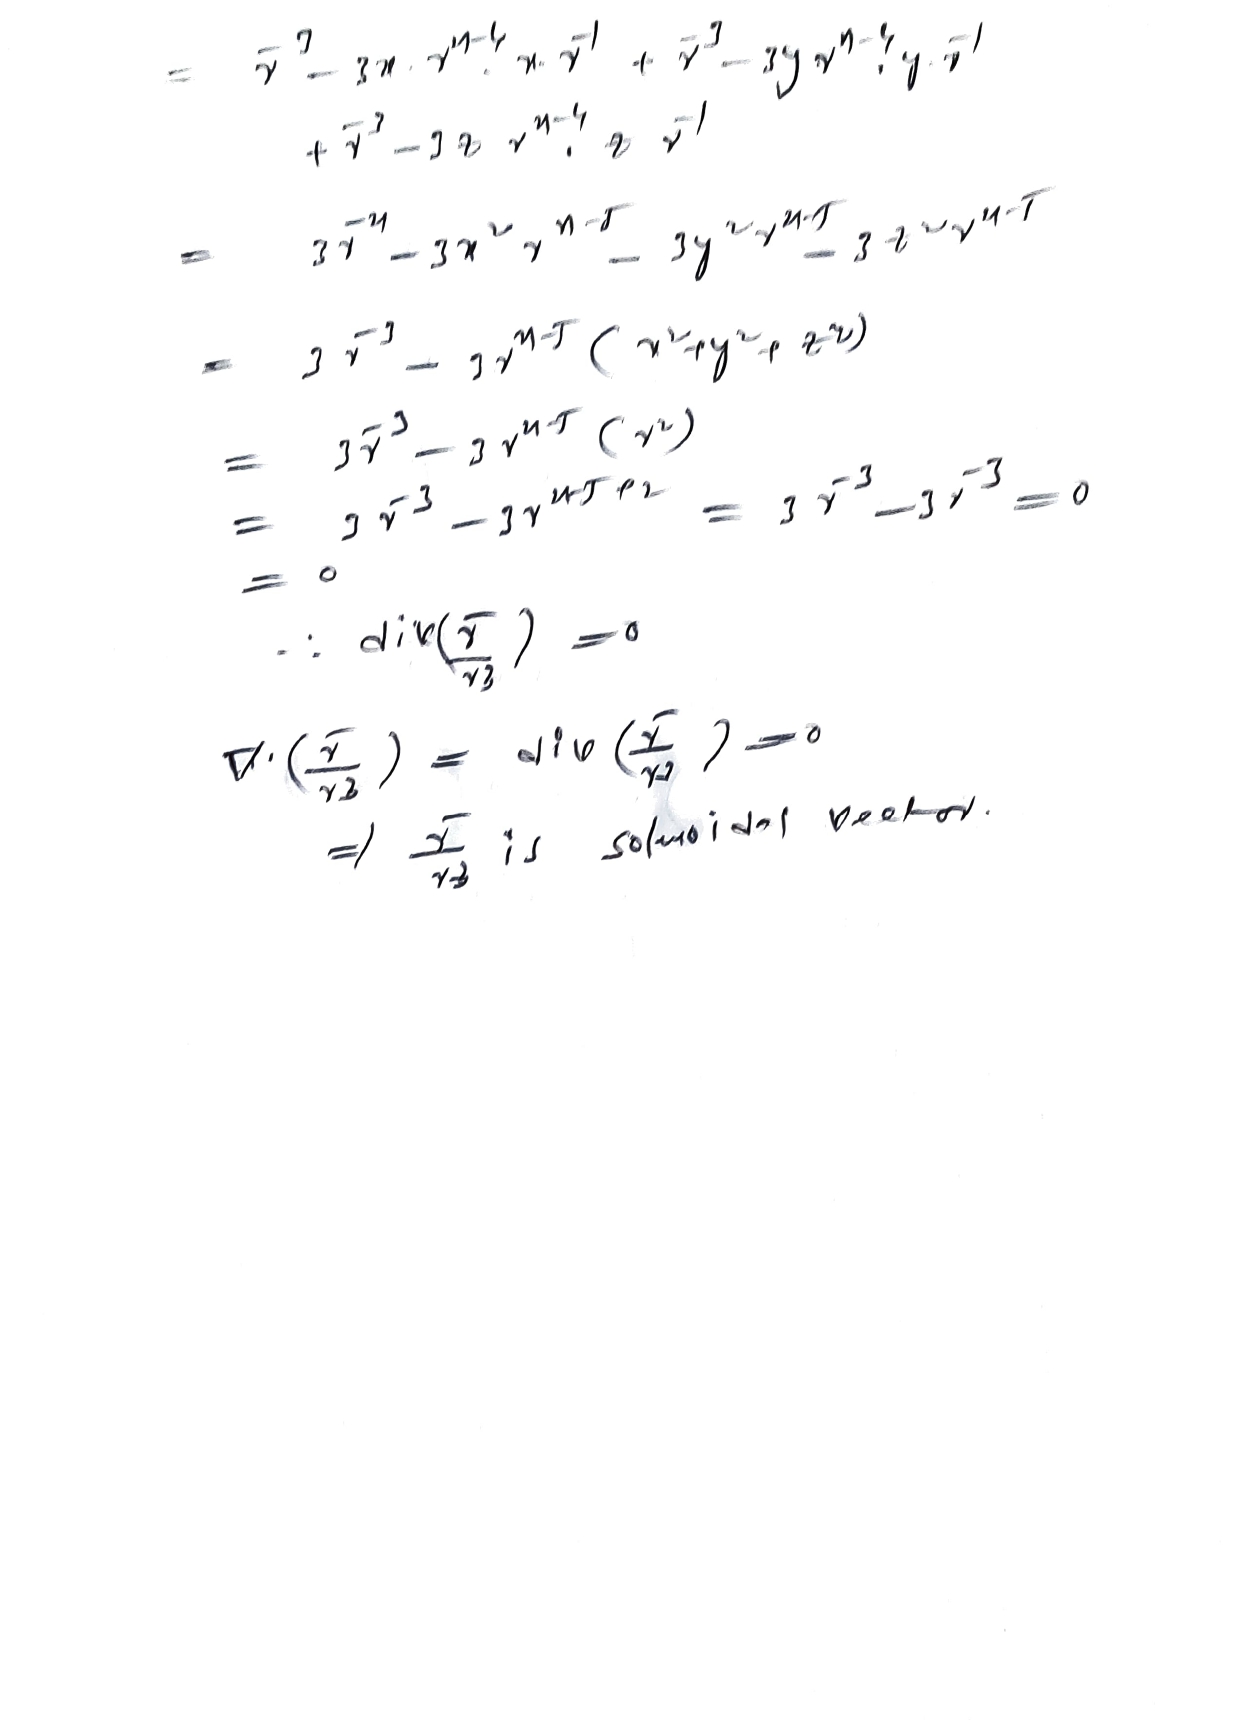 = r̄³ - 3x. rⁿ⁻⁴. x. r̄¹ + r̄³ - 3y rⁿ⁻⁴. y. r̄¹
+ r̄³ - 3z rⁿ⁻⁴. z r̄¹
= 3r⁻ⁿ - 3x² rⁿ⁻⁵ - 3y² rⁿ⁻⁵ - 3z² rⁿ⁻⁵
= 3r⁻³ - 3rⁿ⁻⁵ (x²+y²+z²)
= 3r̄³ - 3rⁿ⁻⁵ (r²)
= 3r̄³ - 3rⁿ⁻⁵⁺² = 3r⁻³ - 3r⁻³ = 0
= 0
∴ div(r̄/r3) = 0
∇.(r̄/r3) = div(r̄/r3) = 0
⇒ r̄/r3 is solenoidal vector.